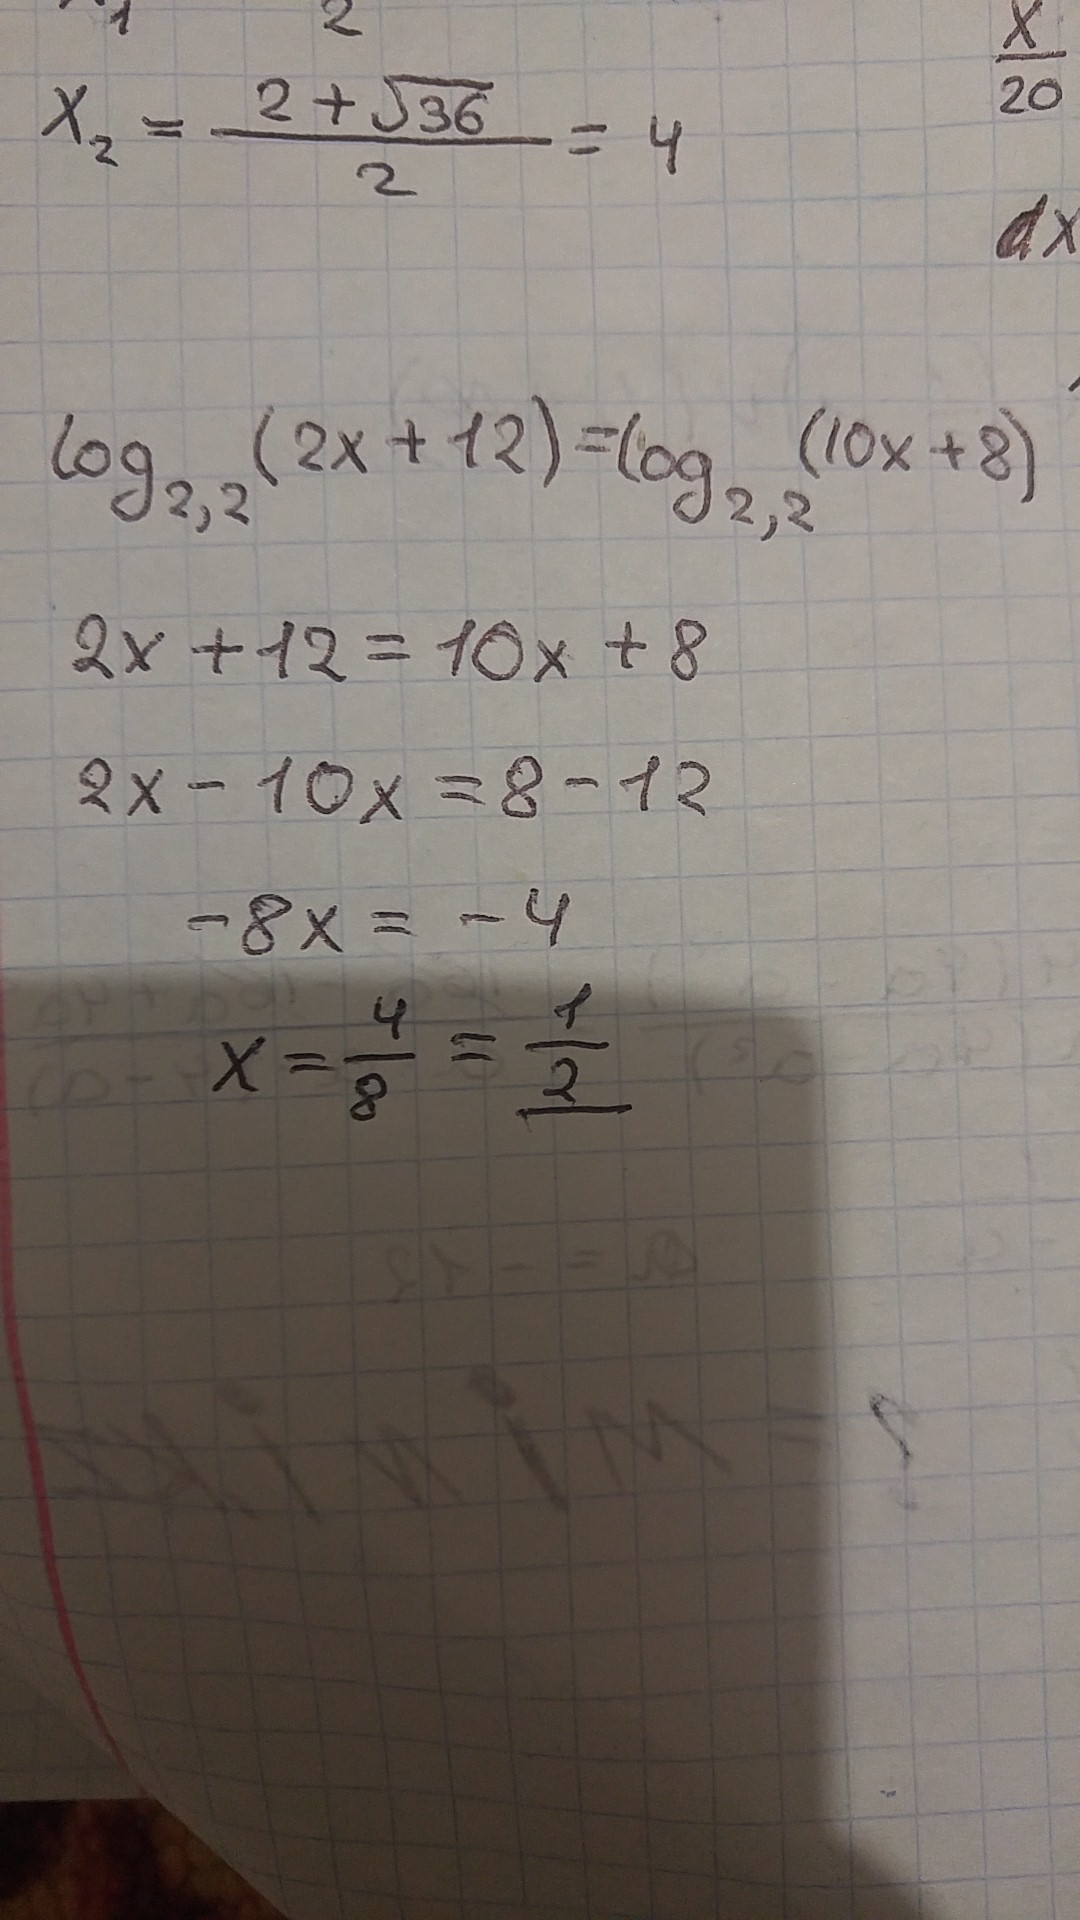 1 2
x
20
x₂ = (2 + √36)/2 = 4
dx
log₂,₂ (2x + 12) = log₂,₂ (10x + 8)
2x + 12 = 10x + 8
2x - 10x = 8 - 12
-8x = -4
x = 4/8 = 1/2